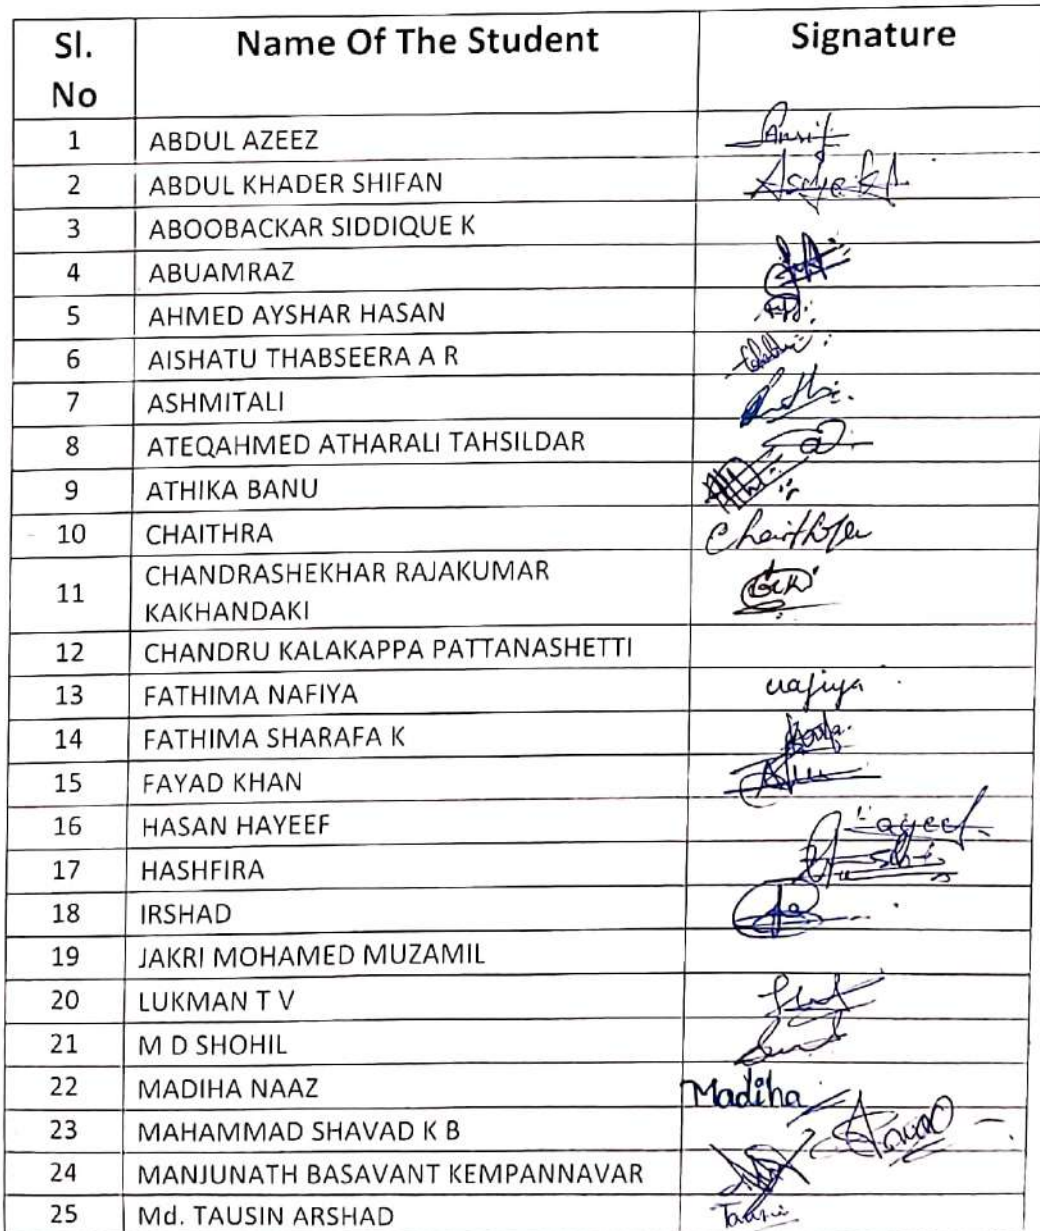 Sl. No Name Of The Student Signature
1 ABDUL AZEEZ
2 ABDUL KHADER SHIFAN
3 ABOOBACKAR SIDDIQUE K
4 ABUAMRAZ
5 AHMED AYSHAR HASAN
6 AISHATU THABSEERA A R
7 ASHMITALI
8 ATEQAHMED ATHARALI TAHSILDAR
9 ATHIKA BANU
10 CHAITHRA
11 CHANDRASHEKHAR RAJAKUMAR
KAKHANDAKI
12 CHANDRU KALAKAPPA PATTANASHETTI
13 FATHIMA NAFIYA nafiya
14 FATHIMA SHARAFA K
15 FAYAD KHAN
16 HASAN HAYEEF
17 HASHFIRA
18 IRSHAD
19 JAKRI MOHAMED MUZAMIL
20 LUKMAN T V
21 M D SHOHIL
22 MADIHA NAAZ Madiha
23 MAHAMMAD SHAVAD K B
24 MANJUNATH BASAVANT KEMPANNAVAR
25 Md. TAUSIN ARSHAD